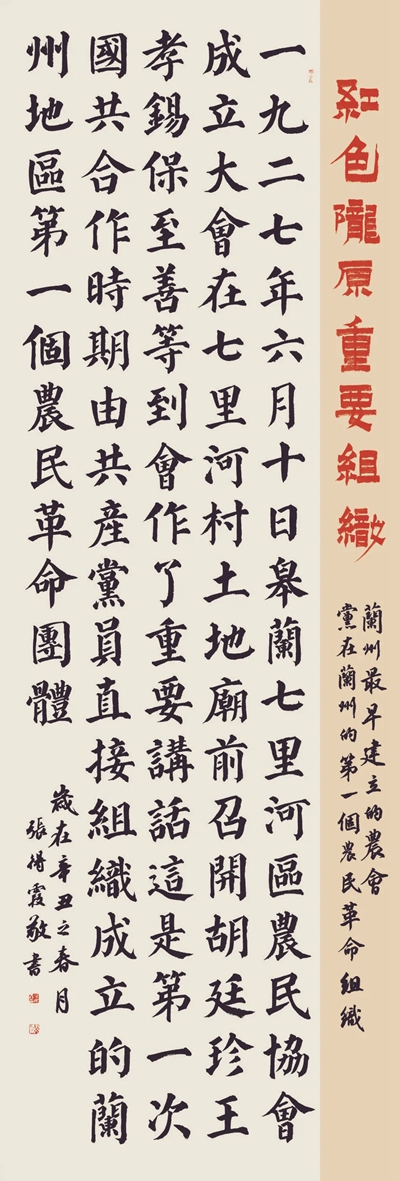 紅色隴原重要組織
蘭州最早建立的農會
黨在蘭州的第一個農民革命組織
一九二七年六月十日皋蘭七里河區農民協會
成立大會在七里河村土地廟前召開胡廷珍王
孝錫保至善等到會作了重要講話這是第一次
國共合作時期由共產黨員直接組織成立的蘭
州地區第一個農民革命團體
歲在辛丑之春月
張得霞敬書